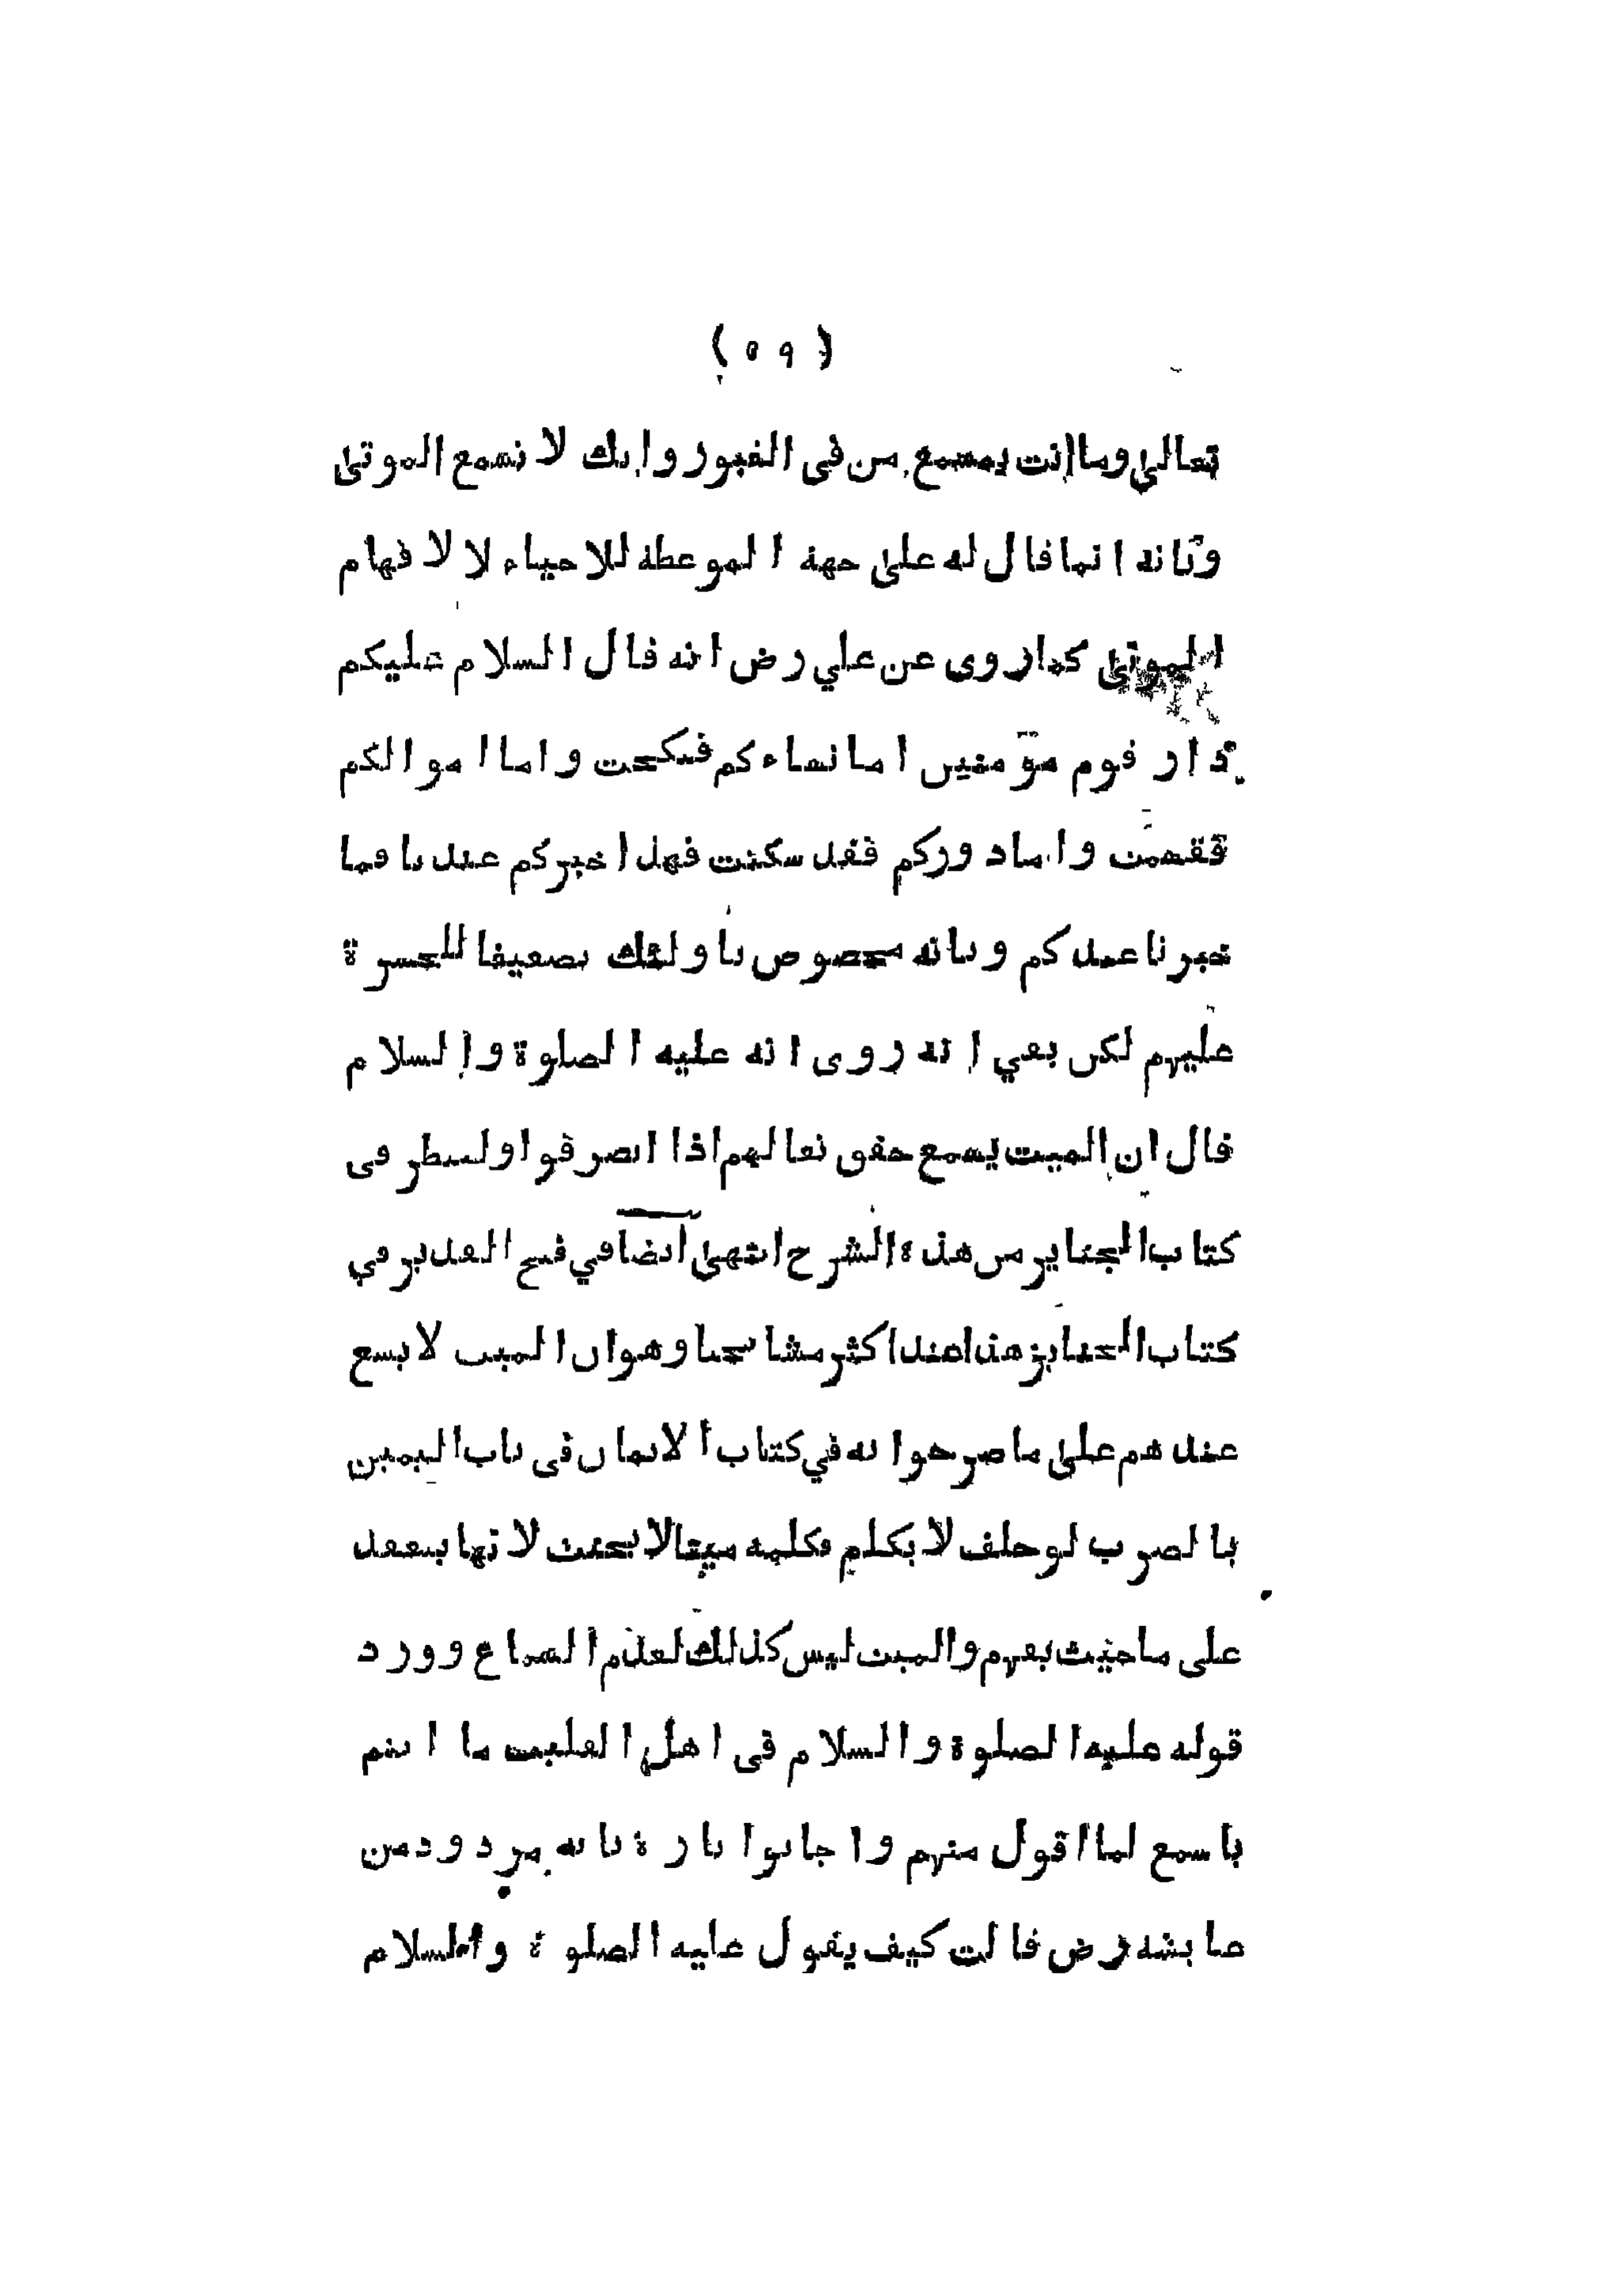 ( ٥٩ )
تعالى وما انت بمسمع من فى القبور وانك لا تسمع الموتى
وبانه انما قال له على جهة الموعظة للاحياء لا لا فهام
الموتى كما روى عن علي رض انه قال السلام عليكم
دار قوم مؤمنين اما نساءكم فنكحت واما اموالكم
فقسمت واما دوركم فقد سكنت فهذا خبركم عندنا فما
خبرنا عندكم وبانه مخصوص باولئك تضعيفا للحسرة
عليهم لكن بقي انه روى انه عليه الصلوة والسلام
قال ان الميت يسمع خفق نعالهم اذا انصرفوا ولينظر فى
كتاب الجنايز من هذه الشرح انتهى ايضا في فتح القدير في
كتاب الجنايز هذا عند اكثر مشايخنا وهو ان الميت لا يسمع
عندهم على ما صرحوا به في كتاب الايمان فى باب اليمين
بالضرب لو حلف لا يكلم فكلمه ميتا لا يحنث لانها ينعقد
على ما حيث يفهم والميت ليس كذلك لعدم السماع وورد
قوله عليه الصلوة والسلام فى اهل القليب ما انتم
باسمع لما اقول منهم واجابوا تارة بانه مردود من
عايشه رض قالت كيف يقول عليه الصلوة والسلام